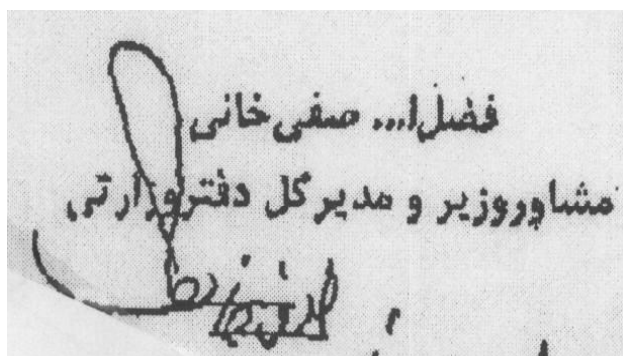 فضل‌ا... صفی‌خانی
مشاوروزیر و مدیر کل دفتروزارتی